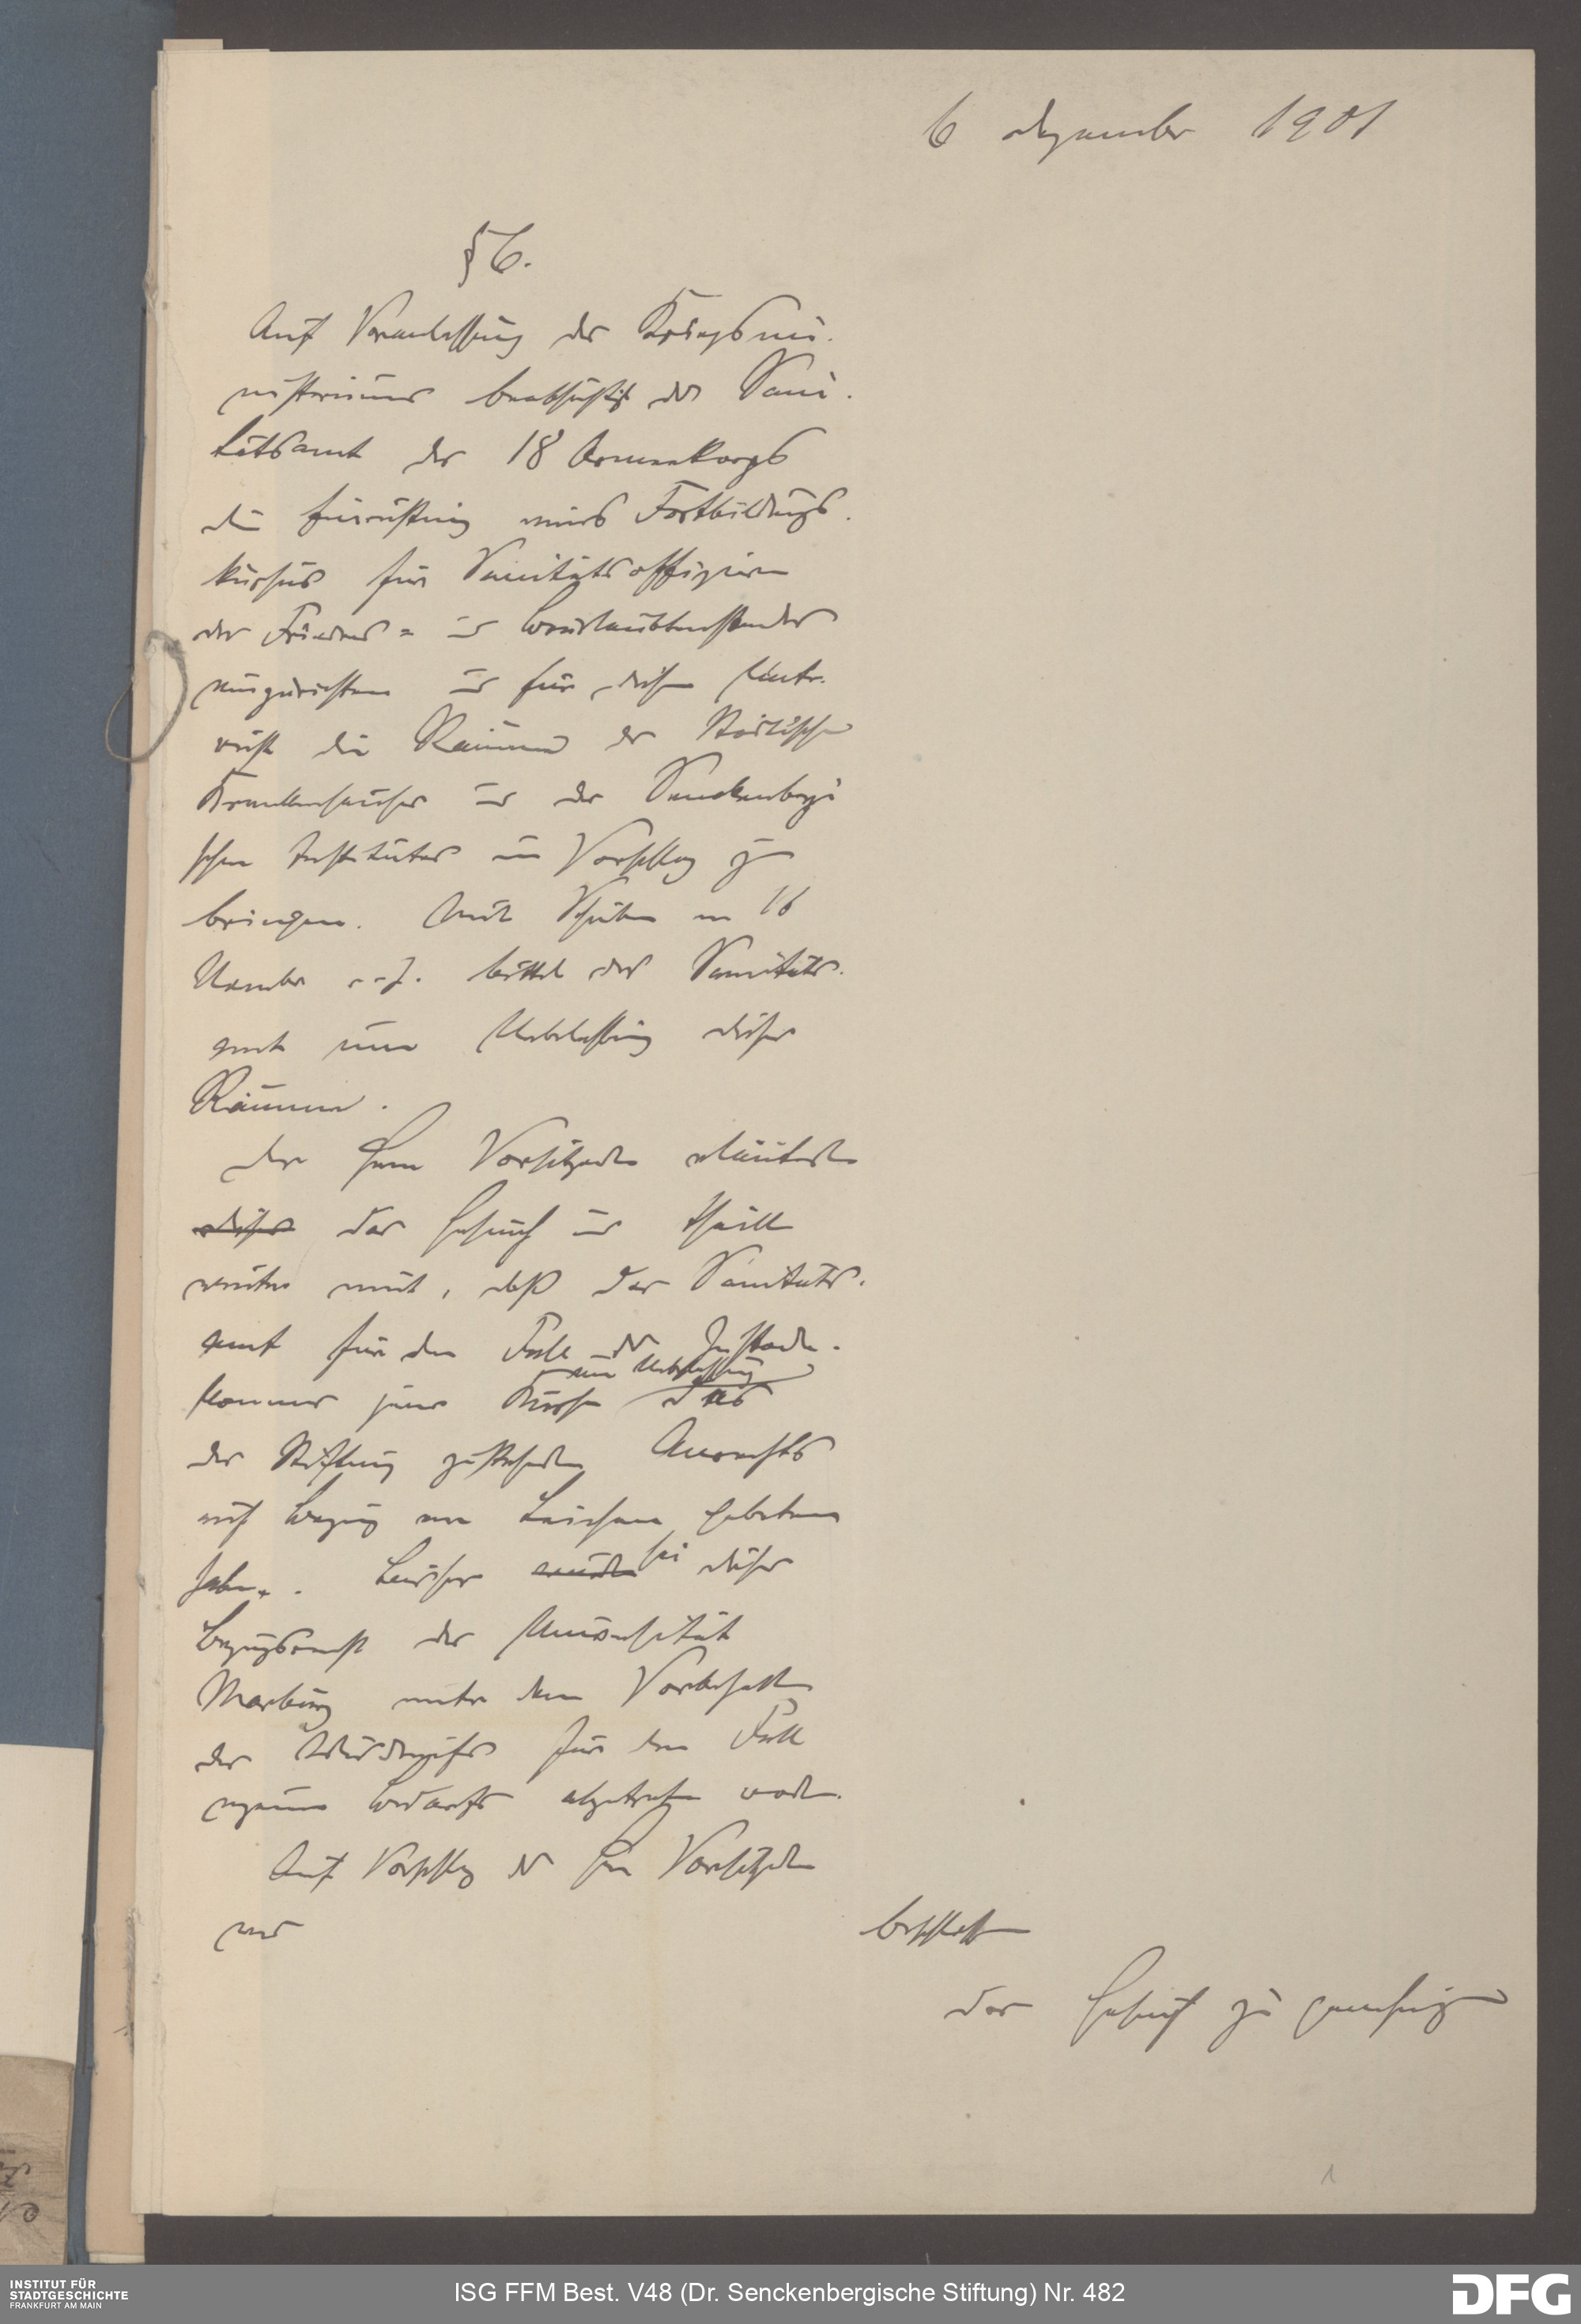 6 Dezember 1901
§ 6.
Auf Veranlassung des Kriegsmi-
nisteriums beabsichtigt das Sani-
tätsamt des 18 Armeekorps
die Einrichtung eines Fortbildungs-
kursus für Sanitätsoffiziere
des Friedens- u. Beurlaubtenstandes
einzurichten u. für diesen Unter-
richt die Räume des Städtischen
Krankenhauses u. des Senckenbergi
schen Institutes in Vorschlag zu
bringen. Mit Schreiben vom 16
November d. J. bittet das Sanitäts-
amt um Ueberlassung dieser
Räume.
Der Herr Vorsitzende erläutert
dieses das Gesuch u. theilt
weiter mit, daß das Sanitäts-
amt für den Fall des Zustande-
um Ueberlassung
kommens jenes Kurses des
der Stiftung zustehenden Anrechts
auf Bezug von Leichen gebeten
habe. Leider wurde sei dieses
Bezugsrecht der Universität
Marburg unter dem Vorbehalte
des Widerrufs für den Fall
eigenen Bedarfs abgetreten worden.
Auf Vorschlag des Herrn Vorsitzenden
wird
beschlossen
das Gesuch zu genehmigen
1
INSTITUT FÜR
STADTGESCHICHTE
FRANKFURT AM MAIN
ISG FFM Best. V48 (Dr. Senckenbergische Stiftung) Nr. 482
DFG